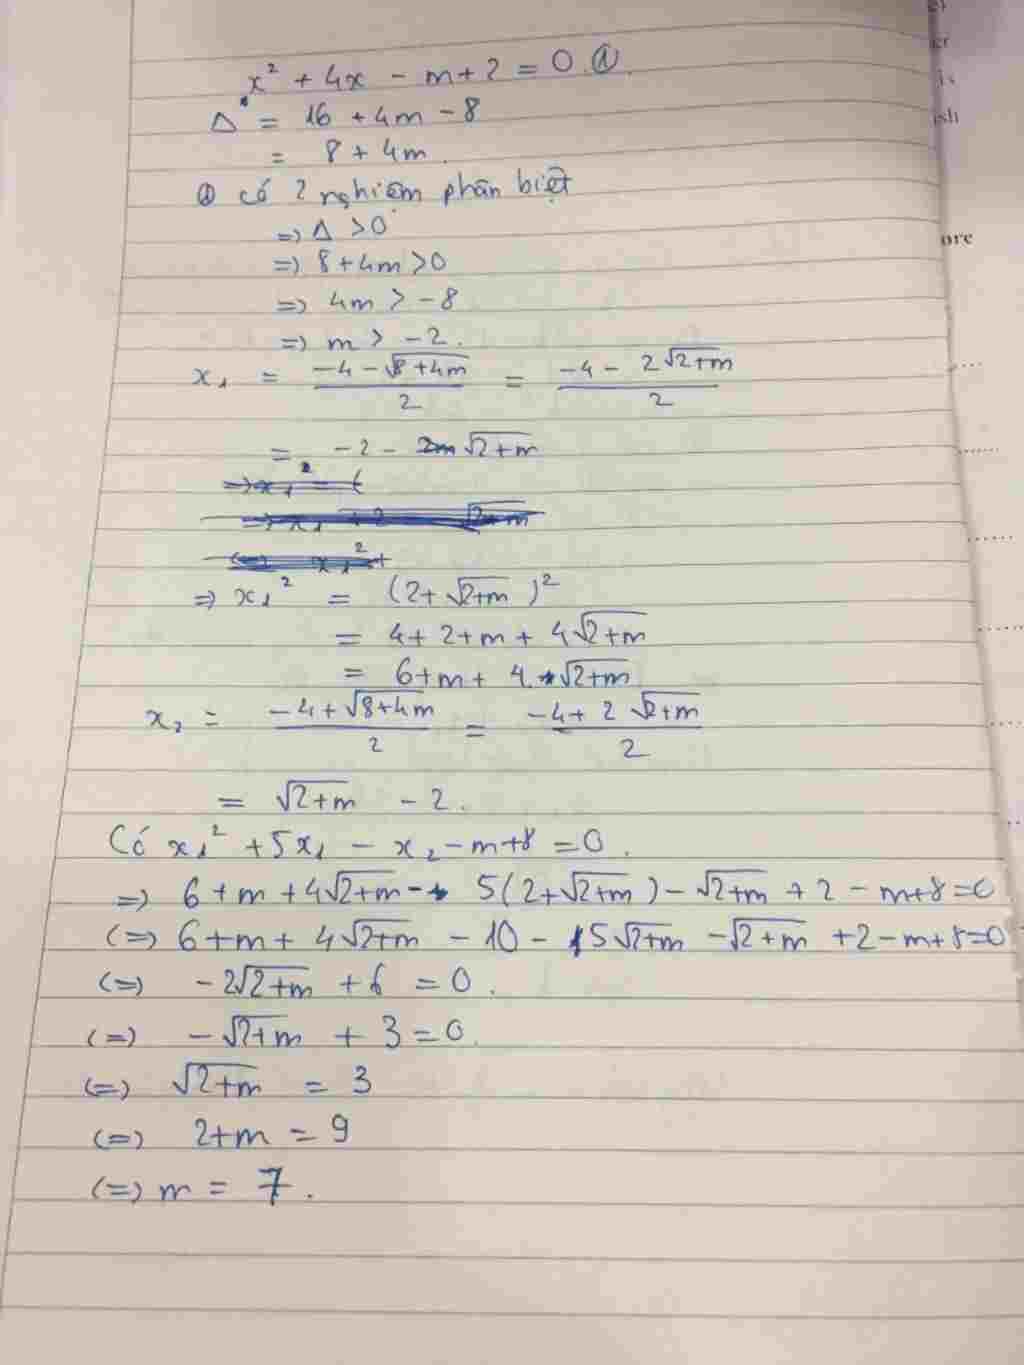 x² + 4x - m + 2 = 0 ①
Δ = 16 + 4m - 8
= 8 + 4m.
① có 2 nghiệm phân biệt
=> Δ > 0
=> 8 + 4m > 0
=> 4m > -8
=> m > -2.
x₁ = (-4 - √(8+4m))/2 = (-4 - 2√(2+m))/2
= -2 - √(2+m)
=> x₁² = (2 + √(2+m))²
= 4 + 2 + m + 4√(2+m)
= 6 + m + 4√(2+m)
x₂ = (-4 + √(8+4m))/2 = (-4 + 2√(2+m))/2
= √(2+m) - 2.
Có x₁² + 5x₁ - x₂ - m + 8 = 0.
=> 6 + m + 4√(2+m) - 5(2 + √(2+m)) - √(2+m) + 2 - m + 8 = 0
(=) 6 + m + 4√(2+m) - 10 - 5√(2+m) - √(2+m) + 2 - m + 8 = 0
(=) -2√(2+m) + 6 = 0.
(=) -√(2+m) + 3 = 0.
(=) √(2+m) = 3
(=) 2 + m = 9
(=) m = 7.
ish
ore